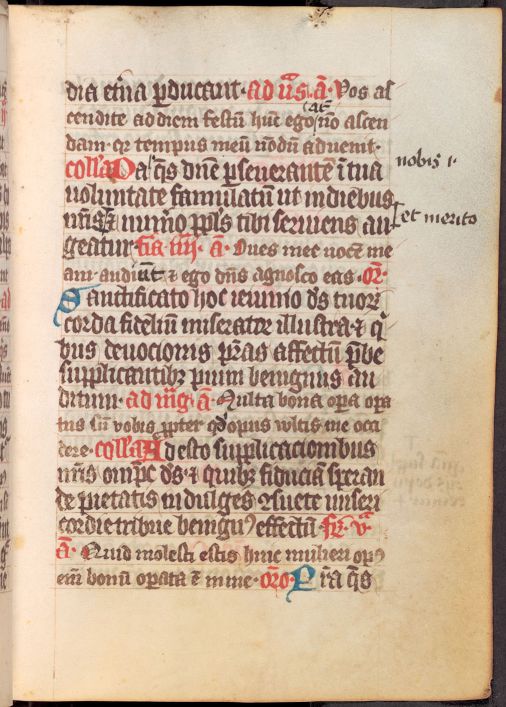 dia et̄na p̄ducant · ad vās . ā · Vos as
cendite ad diem festū hūc ego āt nō ascen
dam · q̄ tempus meū nōdū aduenit ·
coll̄a Da q̄s dn̄e p̄seuerantem ī tua nobis ı ·
uoluntate famulatū ut in diebus
n̄ris et merito num̄o pp̄ls tibi seruiens au
geatur · fīa iiii · ā · Oues mee uocē me
am audiūt ⁊ ego dn̄s agnosco eas · or̄ ·
Sanctificato hoc ieiunio ds̄ tuoꝝ
corda fideliū miseratoꝛ illustra · ⁊ q̄
bus deuocionis p̄stas affectū p̄be
supplicantibꝫ pium benignus au
ditum · ad m̄g · ā · Multa bona oꝑa oꝑa
tus sū vobis ꝓpter qd̄ opus wltis me occi
dere · coll̄a Adesto supplicacionibus
n̄ris om̄pc̄ ds̄ · ⁊ quibꝫ fiduciā speran
de pietatis indulges ꝯsuete miseri
cordie tribue benignꝰ effectū · fr̄ · v̄ª
ā · Quid molesti estis huic mulieri opꝰ
eīm bonū oꝑata ē in me · or̄o · Gr̄a q̄s